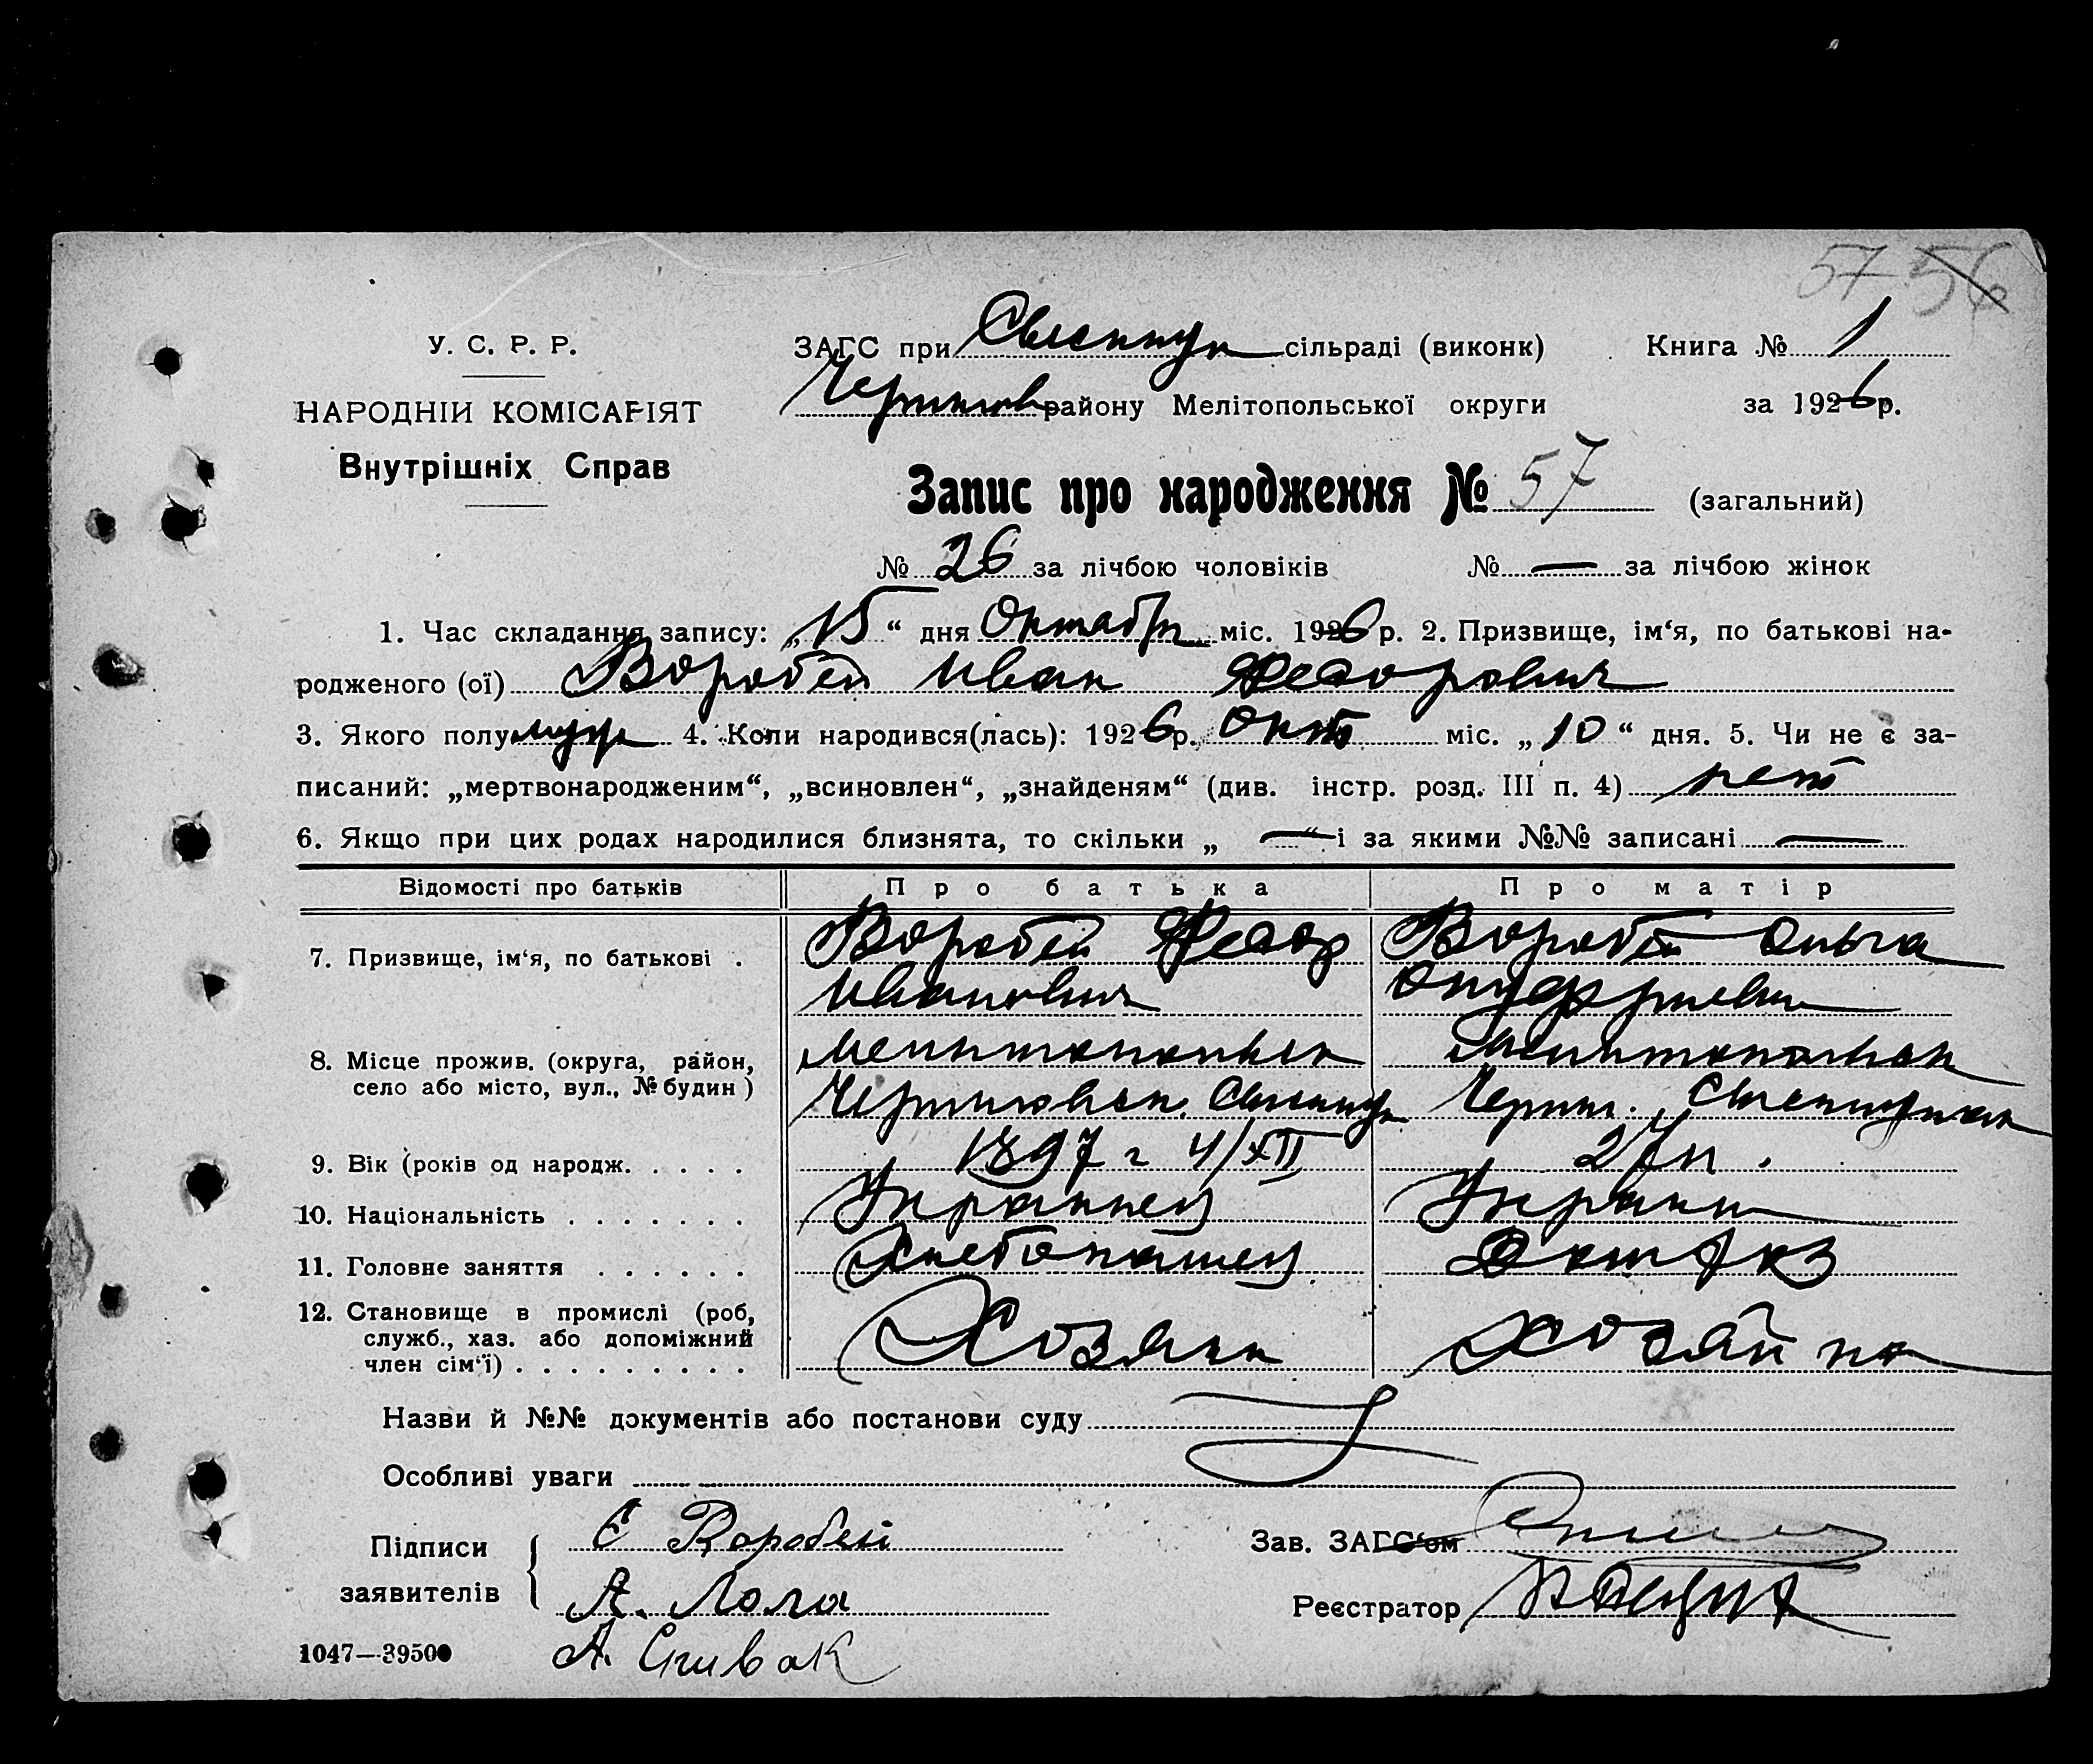 57 56
У. С. Р. Р.
НАРОДНІЙ КОМІСАРІЯТ
Внутрішніх Справ
ЗАГС при сільраді (виконк) Книга № 1
району Мелітопольської округи за 1926 р.
Запис про народження № 57 (загальний)
№ 26 за лічбою чоловіків № — за лічбою жінок
1. Час складання запису: „15“ дня Октября міс. 1926 р. 2. Призвище, ім‘я, по батькові на-
родженого (ої) Воробей Иван Федорович
3. Якого полу муж 4. Коли народився(лась): 1926 р. Октб міс. „10“ дня. 5. Чи не є за-
писаний: „мертвонародженим“, „всиновлен“, „знайденям“ (див. інстр. розд. III п. 4) нет
6. Якщо при цих родах народилися близнята, то скільки „ — “ і за якими №№ записані —
Відомості про батьків Про батька Про матір
7. Призвище, ім‘я, по батькові . Воробей Федор Воробей Ольга
Иванович
8. Місце прожив. (округа, район,
село або місто, вул., № будин)
9. Вік (років од народж. . . . . 1897 г 4/XII 27 л.
10. Національність . . . . . . . Украинец Украин
11. Головне заняття . . . . . . Хлебопашец
12. Становище в промислі (роб,
служб., хаз. або допоміжний
член сім‘ї) . . . . . . . . . Хозяин Хозяйка
Назви й №№ документів або постанови суду
Особливі уваги
Підписи
заявителів
Є Воробей
А. Лола
А. Спивак
Зав. ЗАГС‘ом
Реєстратор
1047—39500